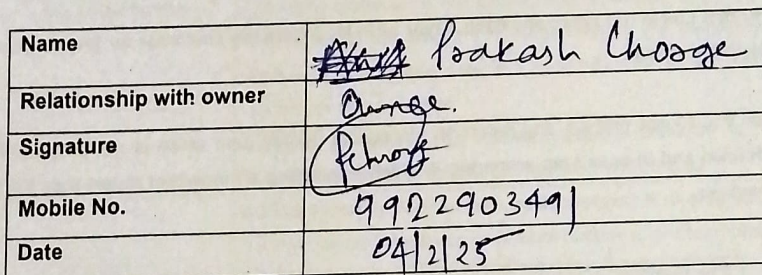 Name Prakash Chorge
Relationship with owner Owner.
Signature
Mobile No. 9922903491
Date 04/2/25